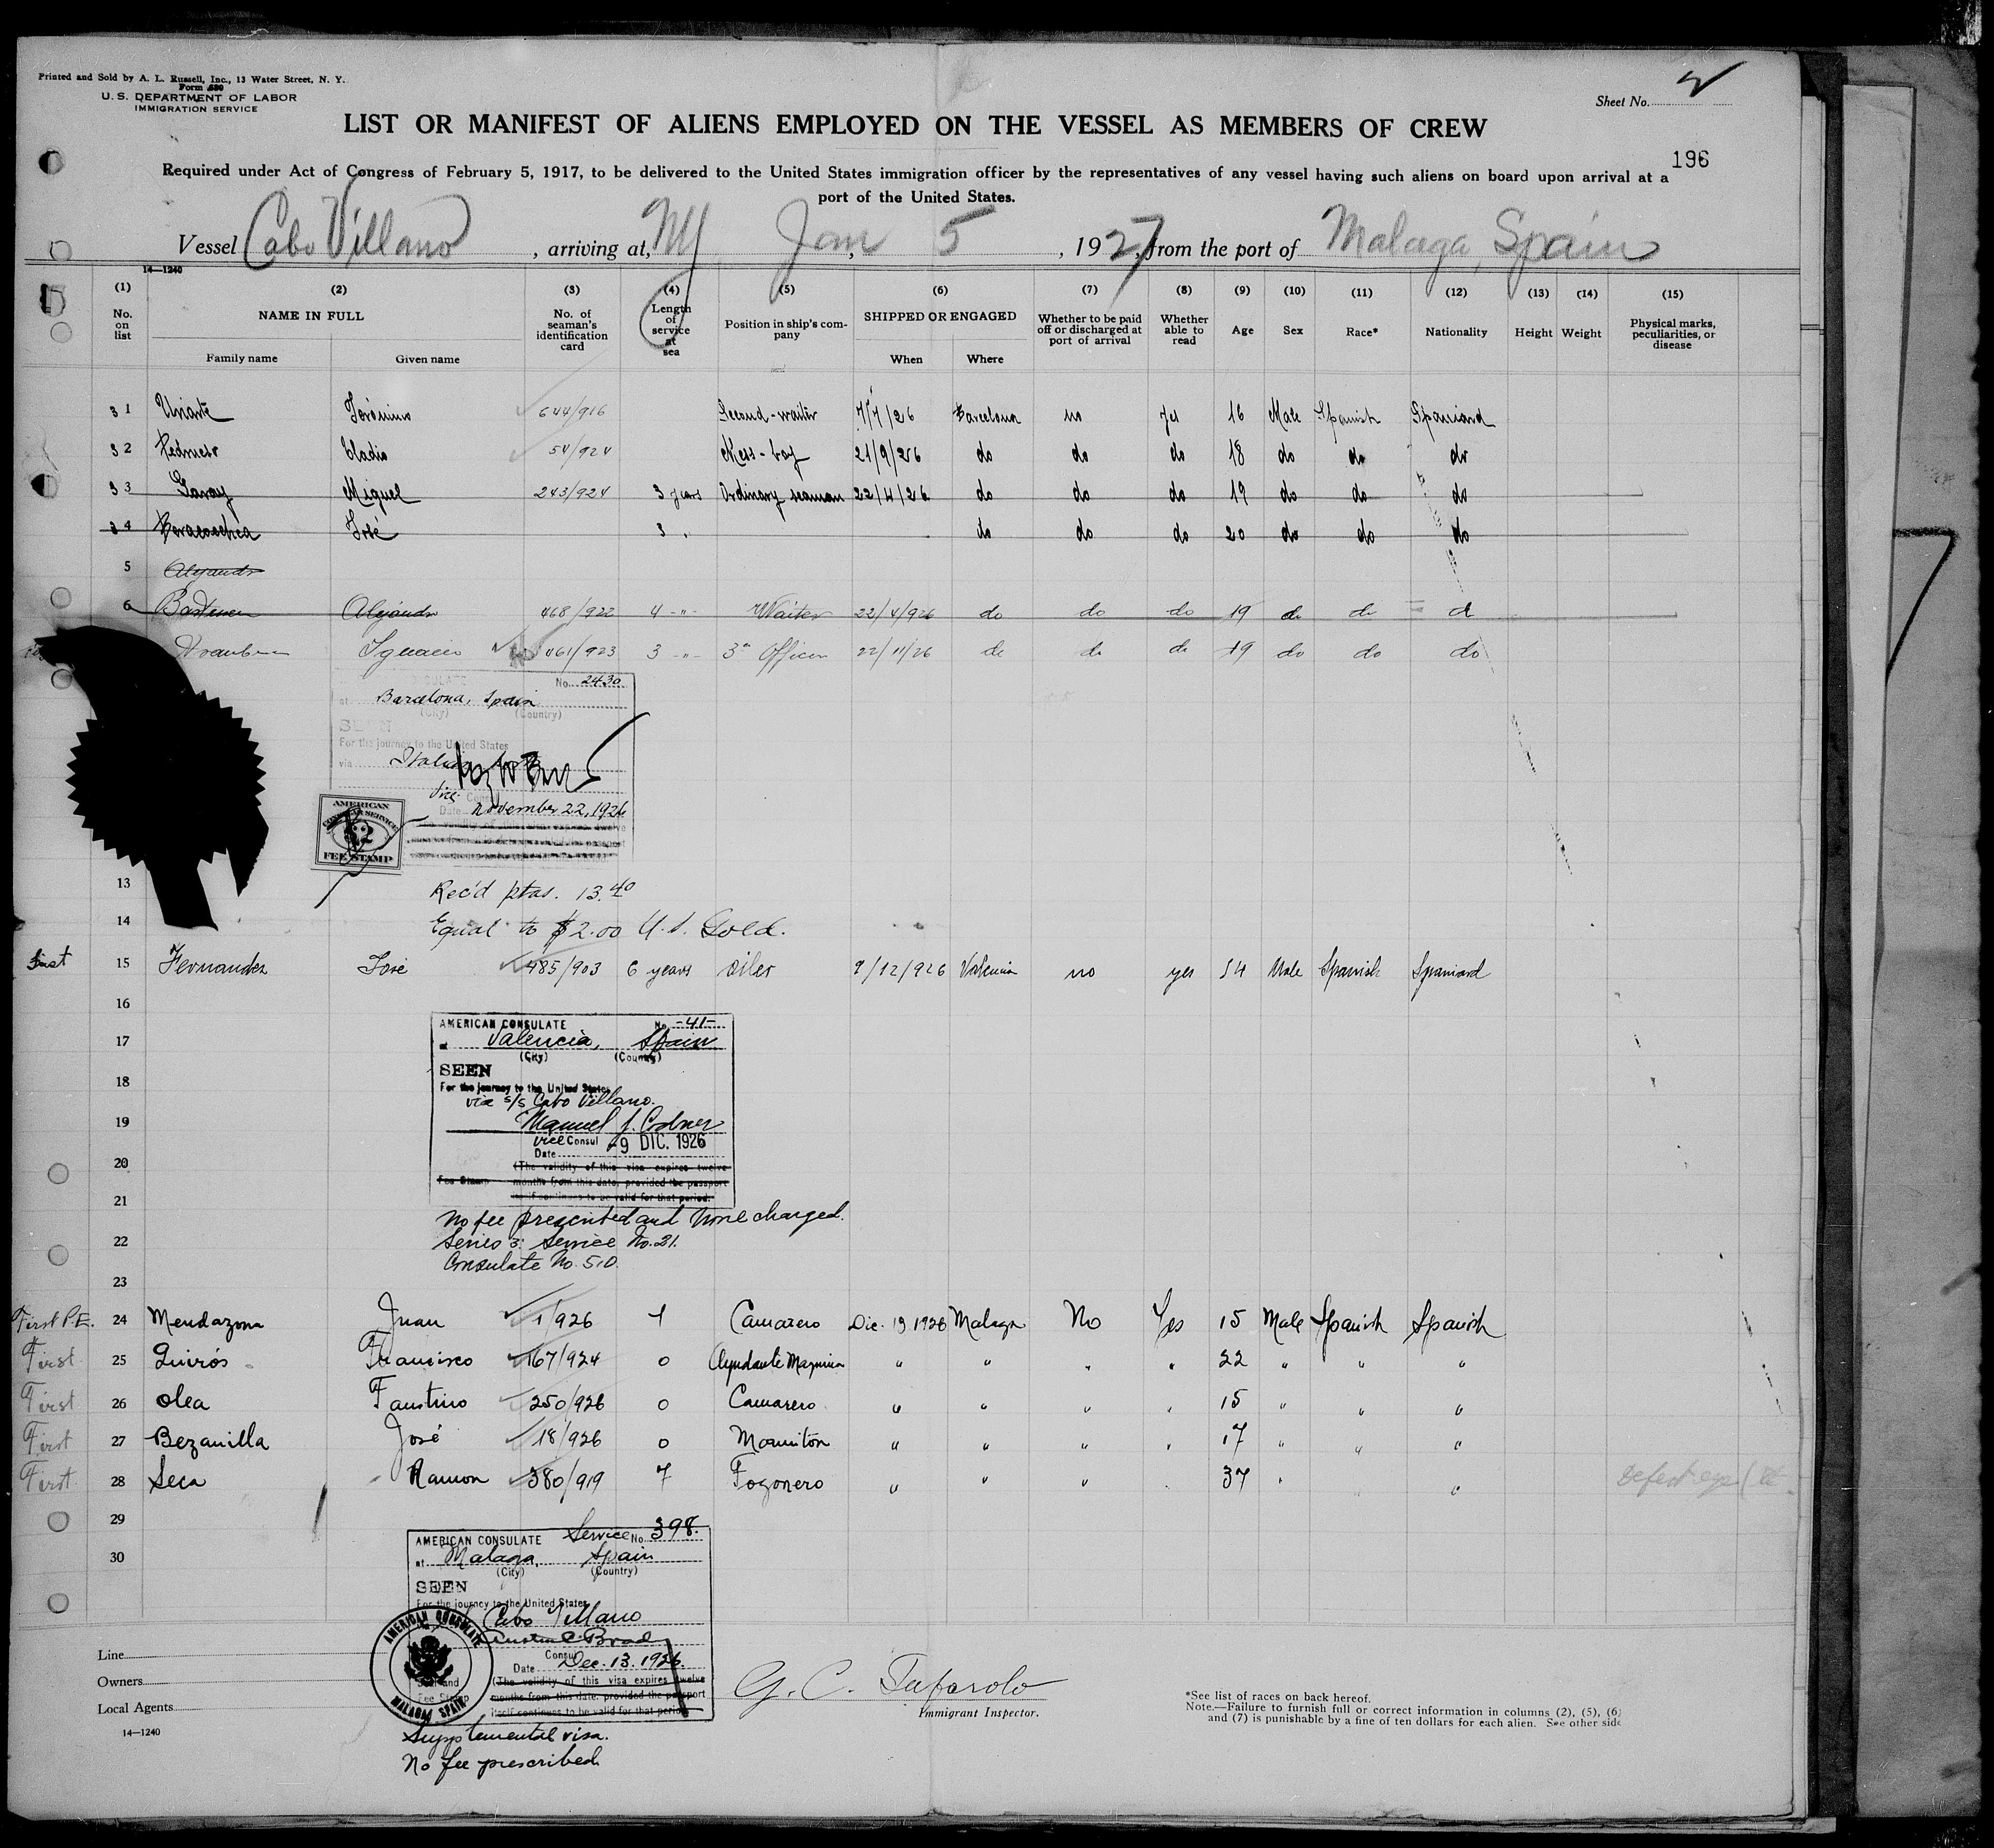 Printed and Sold by A. L. Russell, Inc., 13 Water Street, N. Y.
Form 680
U. S. DEPARTMENT OF LABOR
IMMIGRATION SERVICE
Sheet No. 2
LIST OR MANIFEST OF ALIENS EMPLOYED ON THE VESSEL AS MEMBERS OF CREW
196
Required under Act of Congress of February 5, 1917, to be delivered to the United States immigration officer by the representatives of any vessel having such aliens on board upon arrival at a
port of the United States.
Vessel Cabo Villano, arriving at, NY Jan 5, 1927, from the port of Malaga, Spain
14—1240
(1) (2) (3) (4) (5) (6) (7) (8) (9) (10) (11) (12) (13) (14) (15)
No. on list NAME IN FULL Family name Given name No. of seaman's identification card Length of service at sea Position in ship's company SHIPPED OR ENGAGED When Where Whether to be paid off or discharged at port of arrival Whether able to read Age Sex Race* Nationality Height Weight Physical marks, peculiarities, or disease
31 Uriarte Jerónimo 644/916 Second-waiter 7/7/26 Barcelona no yes 16 Male Spanish Spaniard
32 Eladio 54/924 Mess-boy 21/9/26 do do do 18 do do do
33 Garay Miguel 243/924 3 years Ordinary seaman 22/4/26 do do do 19 do do do
34 José 3 do do do 20 do do do
5 Alejandro
6 Alejandro 468/922 4 -"- Waiter 22/4/926 do do do 19 do do do
Ignacio 461/923 3 -"- 3rd Officer 22/11/26 do do do 19 do do do
No. 2430
at Barcelona, Spain
(City) (Country)
SEEN
For the journey to the United States
via
Vice Consul
Date November 22, 1926
AMERICAN
CONSULAR SERVICE
$2
FEE STAMP
13 Rec'd ptas. 13.40
14 Equal to $2.00 U.S. Gold.
First 15 Fernandez José 485/903 6 years oiler 9/12/926 Valencia no yes 54 Male Spanish Spaniard
16
AMERICAN CONSULATE No. -41-
17 at Valencia, Spain
(City) (Country)
SEEN
18 For the journey to the United States
via s/s Cabo Villano.
19 Manuel J. Codoner
Vice Consul
Date -9 DIC. 1926
20 (The validity of this visa expires twelve
Fee Stamp months from this date, provided the passport
itself continues to be valid for that period.
21 No fee prescribed and None charged.
22 Series 3: Service No. 21.
Consulate No. 510.
23
First P.E. 24 Mendazona Juan 1/926 1 Camarero Dic. 13 1926 Malaga No Yes 15 Male Spanish Spanish
First 25 Quirós Francisco 167/924 0 Ayudante Maquina " " " " 22 " " "
First 26 Olea Faustino 250/926 0 Camarero " " " " 15 " " "
First 27 Bezanilla José 18/926 0 Marmiton " " " " 17 " " "
First 28 Seca Ramon 380/919 7 Fogonero " " " " 37 " " " Defect eye
29
30
AMERICAN CONSULATE Service No. 398.
at Malaga, Spain
(City) (Country)
SEEN
For the journey to the United States
Cabo Villano
Austin C. Brady
Consul
Date Dec. 13. 1926.
(The validity of this visa expires twelve
months from this date, provided the passport
itself continues to be valid for that period.
Seal and
Fee Stamp
AMERICAN CONSULATE
MALAGA SPAIN
Supplemental visa.
No fee prescribed.
Line
Owners
Local Agents
14—1240
G. C. Tafarolo
Immigrant Inspector.
*See list of races on back hereof.
Note.—Failure to furnish full or correct information in columns (2), (5), (6)
and (7) is punishable by a fine of ten dollars for each alien. See other side